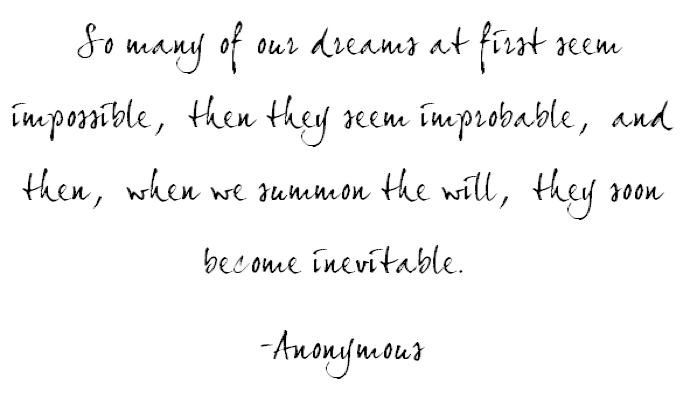 So many of our dreams at first seem
impossible, then they seem improbable, and
then, when we summon the will, they soon
become inevitable.
-Anonymous